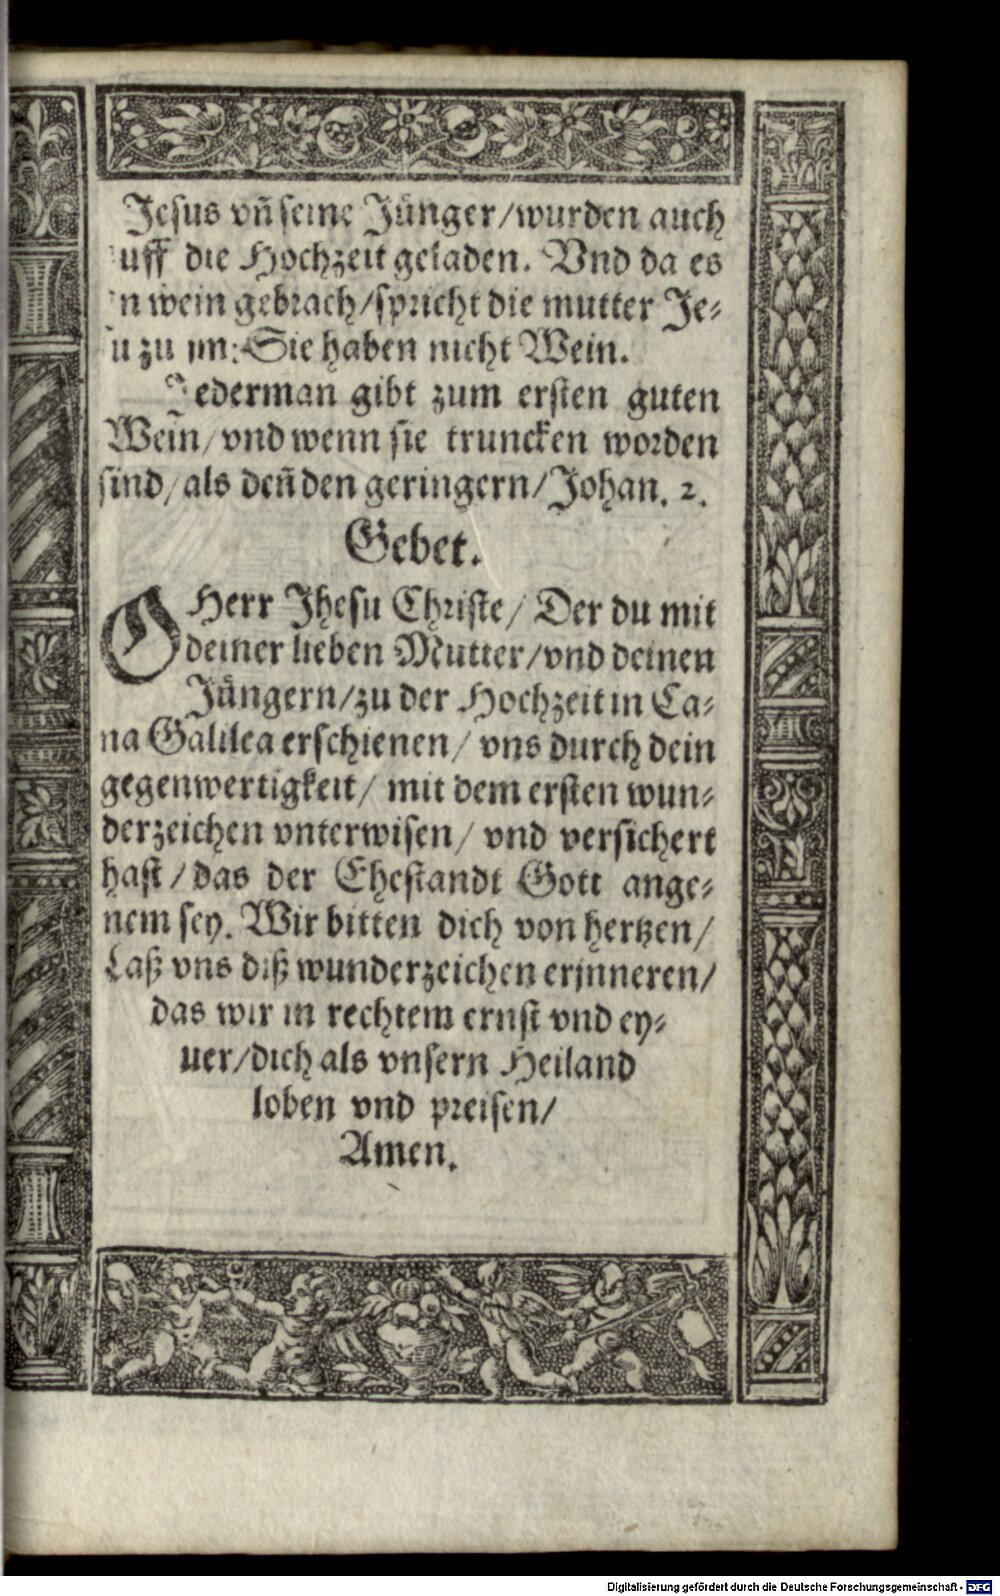 Jesus vn̄ seine Jünger/wurden auch
uff die Hochzeit geladen. Vnd da es
n wein gebrach/spricht die mutter Je-
u zu jm: Sie haben nicht Wein.
Jederman gibt zum ersten guten
Wein/vnd wenn sie truncken worden
sind/als den̄ den geringern/Johan. 2.
Gebet.
O Herr Jhesu Christe/ Der du mit
deiner lieben Mutter/vnd deinen
Jüngern/zu der Hochzeit in Ca-
na Galilea erschienen/ vns durch dein
gegenwertigkeit/ mit dem ersten wun-
derzeichen vnterwisen/ vnd versichert
hast/das der Ehestandt Gott ange-
nem sey. Wir bitten dich von hertzen/
Laß vns diß wunderzeichen erjnneren/
das wir in rechtem ernst vnd ey-
uer/dich als vnsern Heiland
loben vnd preisen/
Amen.
Digitalisierung gefördert durch die Deutsche Forschungsgemeinschaft - DFG